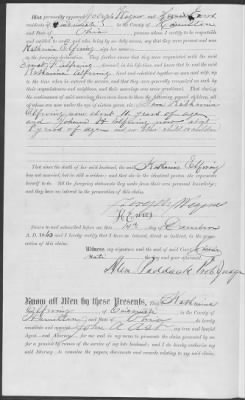 Also personally appeared Joseph Wagner and
residents of Cincinnati in the County of Hamilton
and State of Ohio persons whom I certify to be respectable
and entitled to credit, and who being by me duly sworn, say that they were present and saw
Katharina Elfring sign her name
to the foregoing declaration. They further swear that they were acquainted with the said
Ernst Elfring deceased, in his lifetime, and that he and the said
Katharina Elfring lived and cohabited together as man and wife, up
to the time when he entered the service, and that they were generally reputed as such by
their acquaintances and neighbors, and their marriage was never questioned. That during
the continuance of said marriage there were born to them the following named children, all
of whom are now under the age of sixteen years, viz:
Elfring now about 11 years of age
and Johann H Elfring now about
8 years of age
That since the death of her said husband, she said Katharina Elfring
has not married, but is still a widow; and that she is the identical person she represents
herself to be. All the foregoing statements they make from their own personal knowledge; and
they have no interest in the prosecution of this claim.
Joseph Wagner
Sworn to and subscribed before me this 14th day of
A. D. 1863 and I hereby certify that I have no interest direct or indirect, in the prosecution
of this claim.
Witness, my signature and the seal of said Court
day and year aforesaid.
Alex Paddack Prob Judge
Know all Men by these Presents, That Katharina
Elfring of Cincinnati in the County of
Hamilton and State of Ohio do hereby
constitute and appoint John A. my true and lawful
Agent and Attorney, for me and in my name to prosecute the claim presented by me
for a pension
said Attorney to examine the papers, documents and records relating to my said claim